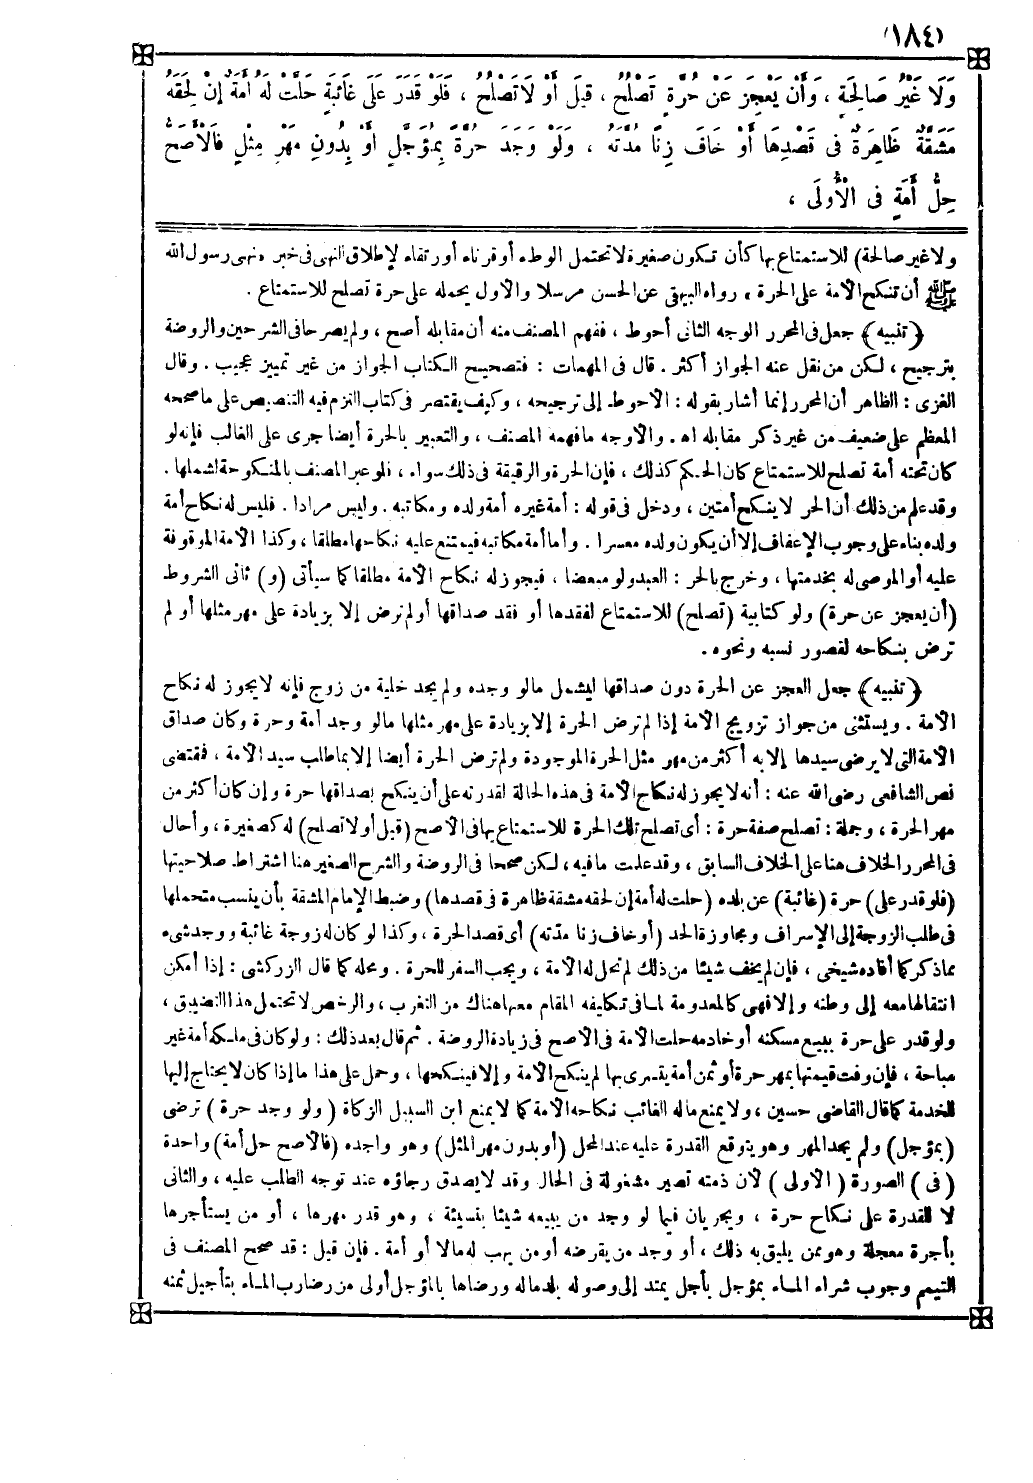 (١٨٤)
وَلَا غَيْرُ صَالِحَةٍ ، وَأَنْ يَعْجِزَ عَنْ حُرَّةٍ تَصْلُحُ ، قِيلَ أَوْ لَا تَصْلُحُ ، فَلَوْ قَدَرَ عَلَى غَائِبَةٍ حَلَّتْ لَهُ أَمَةٌ إِنْ لَحِقَهُ
مَشَقَّةٌ ظَاهِرَةٌ فى قَصْدِهَا أَوْ خَافَ زِنًا مُدَّتَهُ ، وَلَوْ وَجَدَ حُرَّةً بِمُؤَجَّلٍ أَوْ بِدُونِ مَهْرِ مِثْلٍ فَالْأَصَحُّ
حِلُّ أَمَةٍ فى الْأُولَى ،
ولا غير صالحة) للاستمتاع بها كأن تكون صغيرة لا تحتمل الوطء أو قرناء أو رتقاء لإطلاق النهى فى خبر «نهى رسول الله
ﷺ أن تنكح الأمة على الحرة ، رواه البيهقى عن الحسن مرسلا والأول يحمله على حرة تصلح للاستمتاع .
(تنبيه) جعل فى المحرر الوجه الثانى أحوط ، ففهم المصنف منه أن مقابله أصح ، ولم يصرحا فى الشرحين والروضة
بترجيح ، لكن من نقل عنه الجواز أكثر . قال فى المهمات : فتصحيح الكتاب الجواز من غير تمييز عجيب . وقال
الغزى : الظاهر أن المحرر إنما أشار بقوله : الأحوط إلى ترجيحه ، وكيف يقتصر فى كتاب التزم فيه التنصيص على ما صححه
المعظم على ضعيف من غير ذكر مقابله اه . والأوجه ما فهمه المصنف ، والتعبير بالحرة أيضا جرى على الغالب فإنه لو
كان تحته أمة تصلح للاستمتاع كان الحكم كذلك ، فإن الحرة والرقيقة فى ذلك سواء ، فلو عبر المصنف بالمنكوحة لشملها .
وقد علم من ذلك أن الحر لا ينكح أمتين ، ودخل فى قوله : أمة غيره أمة ولده ومكاتبه . وليس مرادا . فليس له نكاح أمة
ولده بناء على وجوب الإعفاف إلا أن يكون ولده معسرا . وأما أمة مكاتبه فيمتنع عليه نكاحها مطلقا ، وكذا الأمة الموقوفة
عليه أو الموصى له بخدمتها ، وخرج بالحر : العبد ولو مبعضا ، فيجوز له نكاح الأمة مطلقا كما سيأتى (و) ثانى الشروط
(أن يعجز عن حرة) ولو كتابية (تصلح) للاستمتاع لفقدها أو فقد صداقها أو لم ترض إلا بزيادة على مهر مثلها أو لم
ترض بنكاحه لقصور نسبه ونحوه .
(تنبيه) جعل العجز عن الحرة دون صداقها ليشمل ما لو وجده ولم يجد خلية من زوج فإنه لا يجوز له نكاح
الأمة . ويستثنى من جواز تزويج الأمة إذا لم ترض الحرة إلا بزيادة على مهر مثلها ما لو وجد أمة وحرة وكان صداق
الأمة التى لا يرضى سيدها إلا به أكثر من مهر مثل الحرة الموجودة ولم ترض الحرة أيضا إلا بما طلب سيد الأمة ، فمقتضى
نص الشافعى رضى الله عنه : أنه لا يجوز له نكاح الأمة فى هذه الحالة لقدرته على أن ينكح بصداقها حرة وإن كان أكثر من
مهر الحرة ، وجملة : تصلح صفة حرة : أى تصلح تلك الحرة للاستمتاع بها فى الأصح (قيل أو لا تصلح) له كصغيرة ، وأحال
فى المحرر الخلاف هنا على الخلاف السابق ، وقد علمت ما فيه ، لكن صححا فى الروضة والشرح الصغير هنا اشتراط صلاحيتها
(فلو قدر على) حرة (غائبة) عن بلده (حلت له أمة إن لحقه مشقة ظاهرة فى قصدها) وضبط الإمام المشقة بأن ينسب متحملها
فى طلب الزوجة إلى الإسراف ومجاوزة الحد (أو خاف زنا مدته) أى قصد الحرة ، وكذا لو كان له زوجة غائبة ووجد شىء
مما ذكر كما أفاده شيخى ، فإن لم يخف شيئا من ذلك لم تحل له الأمة ، ويجب السفر للحرة . ومحله كما قال الزركشى : إذا أمكن
انتقالها معه إلى وطنه وإلا فهى كالمعدومة لما فى تكليفه المقام معها هناك من التغرب ، والرخص لا تحتمل هذا التضييق ،
ولو قدر على حرة ببيع مسكنه أو خادمه حلت الأمة فى الأصح فى زيادة الروضة . ثم قال بعد ذلك : ولو كان فى ملكه أمة غير
مباحة ، فإن وفت قيمتها بمهر حرة أو ثمن أمة يتسرى بها لم ينكح الأمة وإلا فينكحها ، وحمل على هذا ما إذا كان لا يحتاج إليها
للخدمة كما قال القاضى حسين ، ولا يمنع ماله الغائب نكاحه الأمة كما لا يمنع ابن السبيل الزكاة ( ولو وجد حرة ) ترضى
(بمؤجل) ولم يجد المهر وهو يتوقع القدرة عليه عند المحل (أو بدون مهر المثل) وهو واجده (فالأصح حل أمة) واحدة
(فى) الصورة ( الأولى ) لأن ذمته تصير مشغولة فى الحال وقد لا يصدق رجاؤه عند توجه الطلب عليه ، والثانى
لا للقدرة على نكاح حرة ، ويجريان فيما لو وجد من يبيعه شيئا بنسيئة ، وهو قدر مهرها ، أو من يستأجرها
بأجرة معجلة وهو ممن يليق به ذلك ، أو وجد من يقرضه أو من يهب له مالا أو أمة . فإن قيل : قد صحح المصنف فى
التيمم وجوب شراء الماء بمؤجل بأجل يمتد إلى وصوله بلد ماله ورضاها بالمؤجل أولى من رضا رب الماء بتأجيل ثمنه